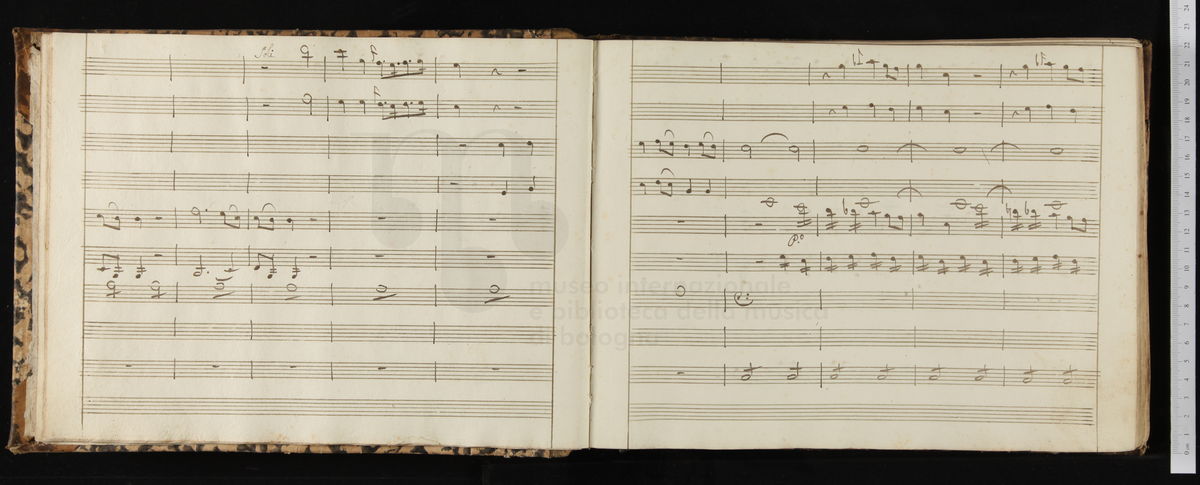 Soli
f
f
P.º
museo internazionale
e biblioteca della musica
di bologna
0 cm 1 2 3 4 5 6 7 8 9 10 11 12 13 14 15 16 17 18 19 20 21 22 23 24